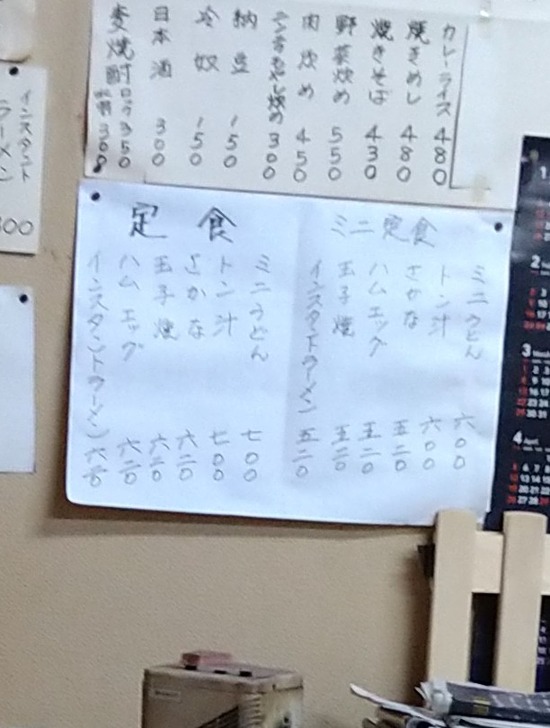 カレーライス 480
焼きめし 480
焼きそば 430
野菜炒め 550
肉炒め 450
300
納豆 150
冷奴 150
日本酒 300
麦焼酎 ロック 350
300
ミニ定食
ミニうどん 六〇〇
トン汁 六〇〇
さかな 五二〇
ハムエッグ 五二〇
玉子焼 五二〇
インスタントラーメン 五二〇
定食
ミニうどん 七〇〇
トン汁 七〇〇
さかな 六二〇
玉子焼 六二〇
ハムエッグ 六二〇
インスタントラーメン 六二〇
インスタントラーメン
1
2
3
4 April